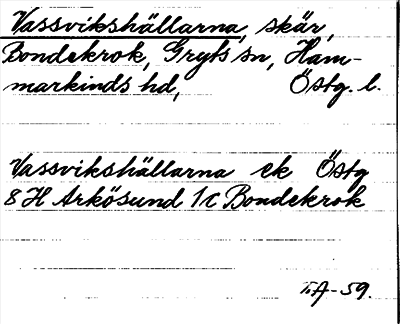 Vassvikshällarna, skär,
Bondekrok, Gryts sn, Ham-
markinds hd, Östg. l.
Vassvikshällarna ek Östg
8 H Arkösund 1 c Bondekrok
T.A-59.